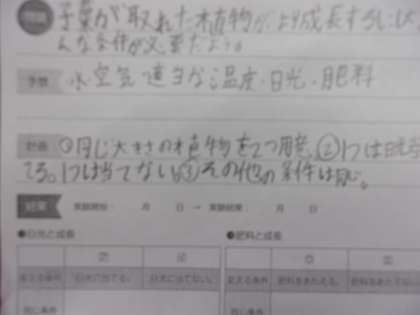 問題 子葉が取れた植物が、より成長するにはど
んな条件が必要だろう。
予想 水 空気 適当な温度・日光・肥料
計画 ①同じ大きさの植物を2つ用意、②1つは日光を当
てる。1つは当てない。③その他の条件は同じ。
結果 実験開始： 月 日 → 実験結果： 月 日
❶日光と成長 ❷肥料と成長
㋐ ㋑ ㋒ ㋓
変える条件 日光に当てる。 日光に当てない。 変える条件 肥料をあたえる。 肥料をあたえない
同じ条件 同じ条件